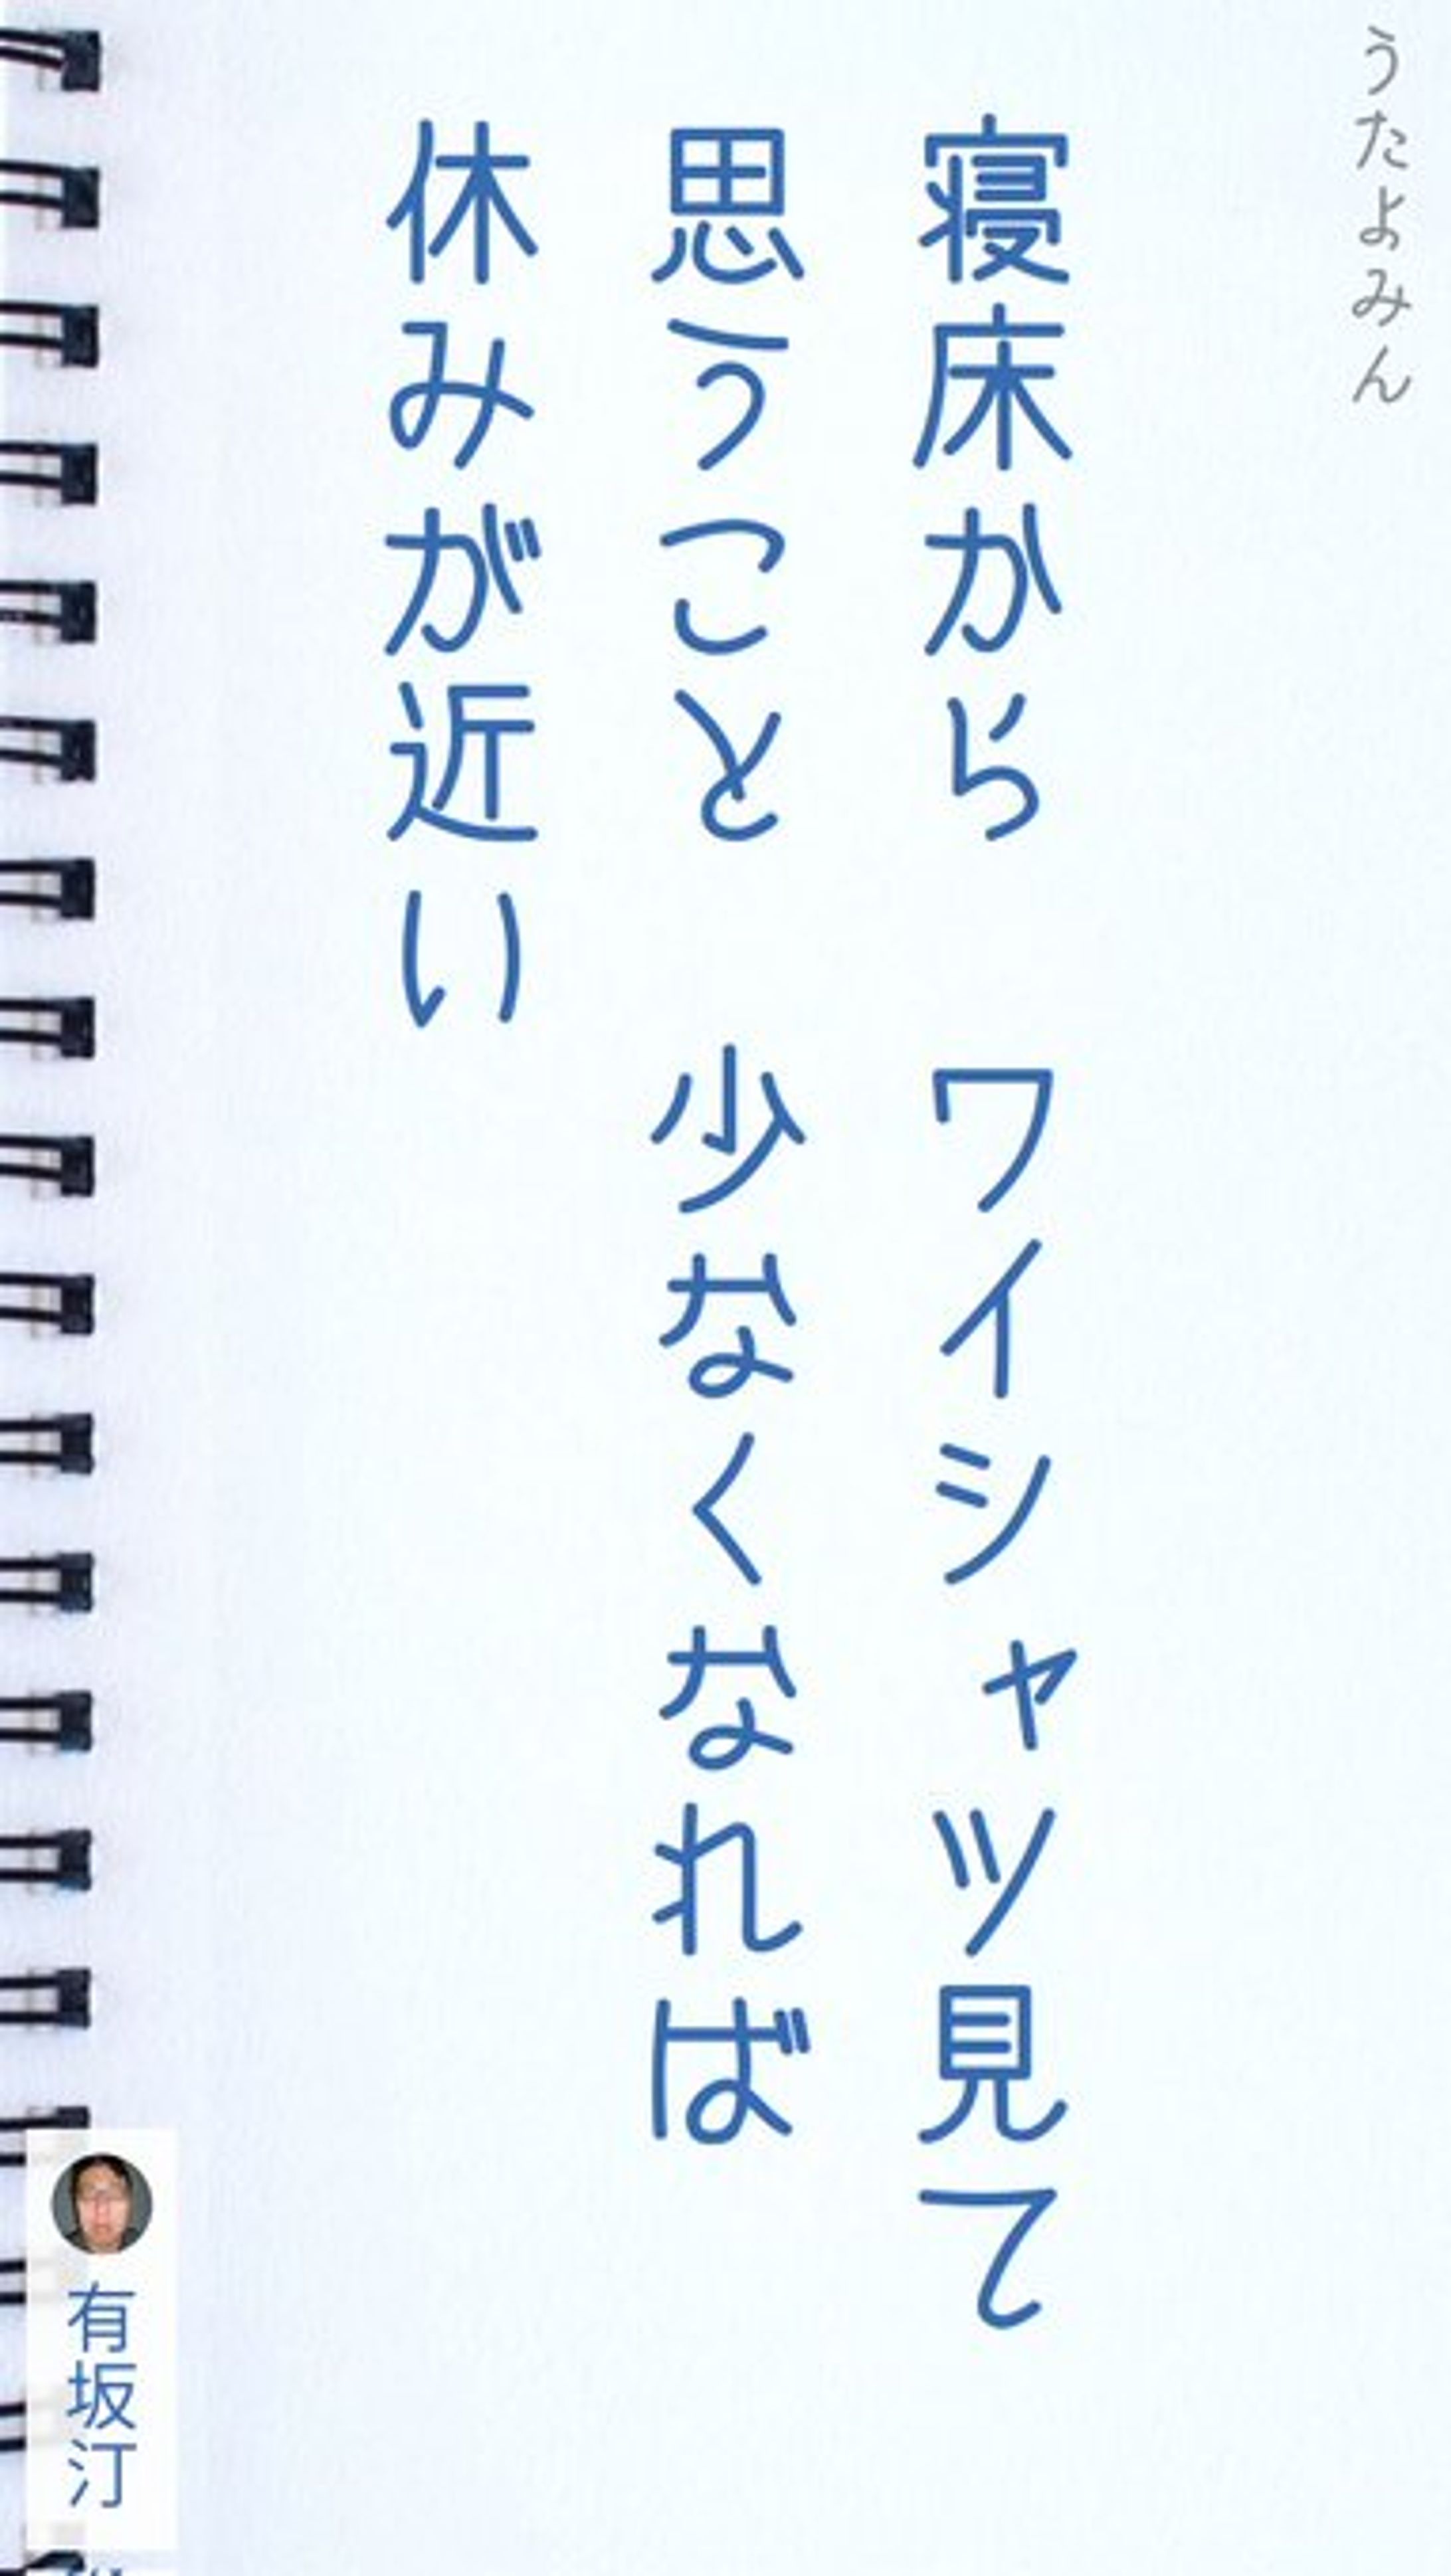 うたよみん
寝床から　ワイシャツ見て
思うこと　少なくなれば
休みが近い
有坂汀